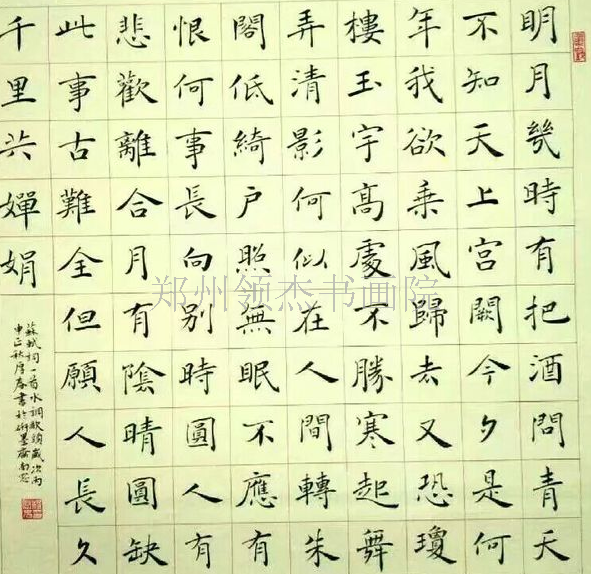 明月幾時有把酒問青天
不知天上宮闕今夕是何
年我欲乘風歸去又恐瓊
樓玉宇高處不勝寒起舞
弄清影何似在人間轉朱
閣低綺户照無眠不應有
恨何事長向别時圓人有
悲歡離合月有陰晴圓缺
此事古難全但願人長久
千里共嬋娟
蘇軾詞一首水調歌頭歲次丙
申正秋書於墨齋南窓
郑州领杰书画院